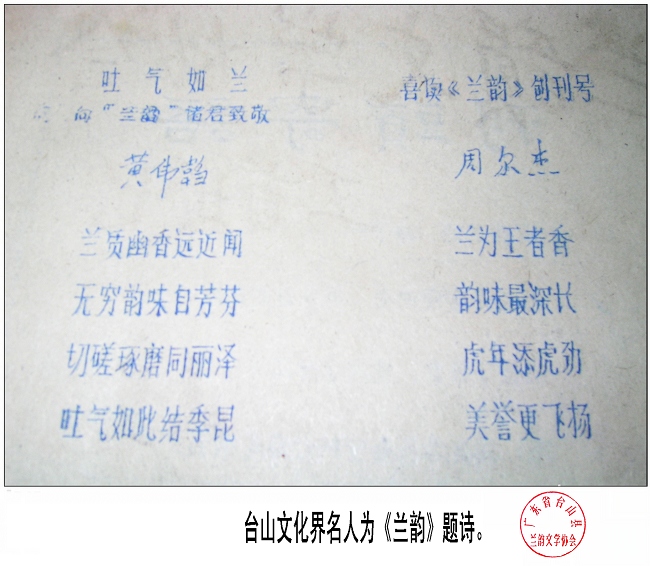 吐气如兰
向“兰韵”诸君致敬
黄伟
兰质幽香远近闻
无穷韵味自芳芬
切磋琢磨同丽泽
吐气如此结季昆
喜读《兰韵》创刊号
周尔杰
兰为王者香
韵味最深长
虎年添虎劲
美誉更飞扬
台山文化界名人为《兰韵》题诗。
广东省台山县
兰韵文学协会